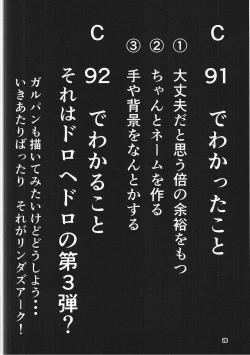 C91 でわかったこと
① 大丈夫だと思う倍の余裕をもつ
② ちゃんとネームを作る
③ 手や背景をなんとかする
C92 でわかること
それはドロヘドロの第3弾？
ガルパンも描いてみたいけどどうしよう…
いきあたりばったり それがリンダズアーク！